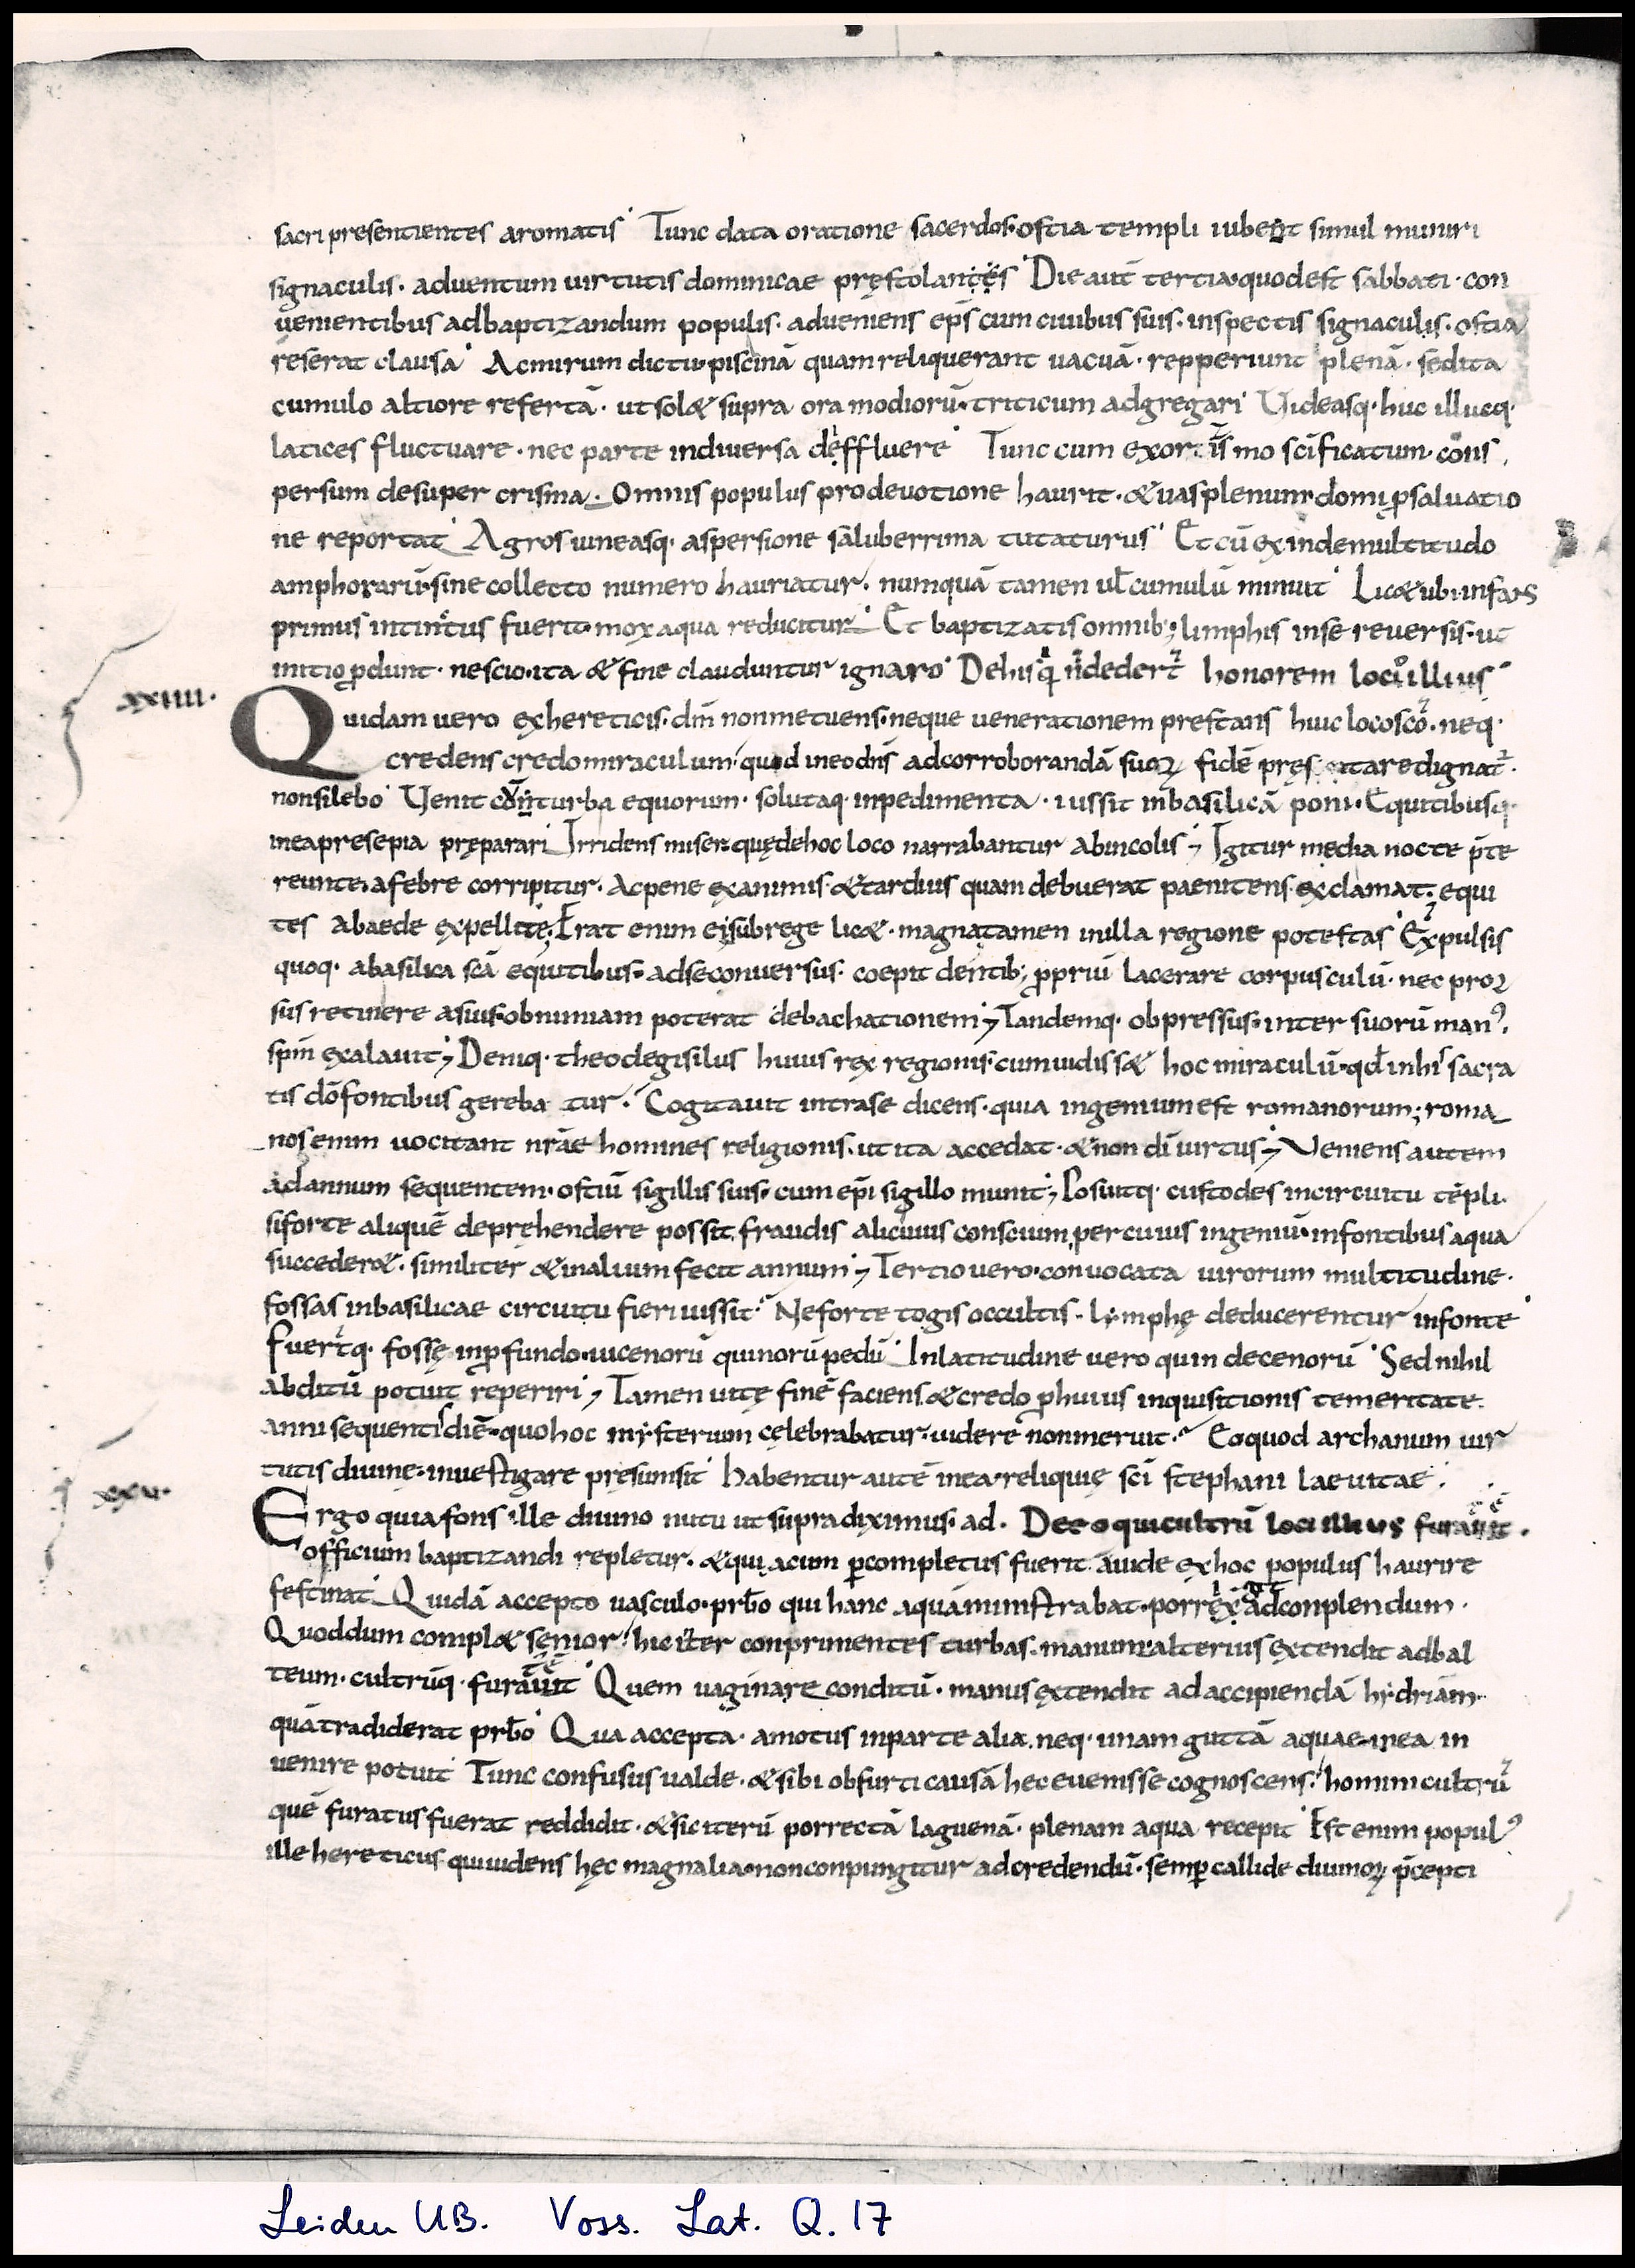 sacri presentientes aromatis· Tunc data oratione sacerdos· ostia templi iubent simul muniri
signaculis· aduentum uirtutis dominicae pręstolantes· Die aut̄ tertia· quod est sabbati· con
uenientibus ad baptizandum populis· adueniens ep̄s cum ciuibus suis· inspectis signaculis· ostia
reserat clausa· Ac mirum dictu· piscinā quam reliquerant uacuā· repperiunt plenā· sed ita
cumulo altiore refertā· ut sol& supra ora modiorū· triticum adgregari· Uideasq· huc illucq·
latices fluctuare· nec parte in diuersa deffluere· Tunc cum exor
mo sc̄ificatum· cons
persum desuper crisma· Omnis populus pro deuotione haurit· & uas plenum· domi ꝑ saluatio
ne reportat· Agros uineasq· aspersione saluberrima tutaturus· Et cū exinde multitudo
amphorarū· sine collecto numero hauriatur· numquā tamen ul̄ cumulū minuit· Lic& ubi infans
primus intinctus fuerit· mox aqua reducitur· Et baptizatis omnib; limphis in se reuersis· ut
initio ꝓdunt· nescio· ita & fine clauduntur ignaro· De his q̄ n̄ dedert̄ honorem loco illius
xxiiii·
Quidam uero ex hereticis· dm̄ non metuens· neque uenerationem prestans huic loco sc̄o· neq·
credens credo miraculum· quod in eo dn̄s ad corroborandā suoꝝ fidē pręs ntare dignat̄·
non silebo· Uenit cum turba equorum· solutaq· inpedimenta· iussit in basilicā poni· Equitibusq·
in ea presepia pręparari· Irridens miser· quę de hoc loco narrabantur ab incolis; Igitur media nocte p̄te
reunte· a febre corripitur· Ac pene exanimis· & tardius quam debuerat paenitens· exclamat· equi
tes ab aede expellite; Erat enim ei sub rege lic&· magna tamen in illa regione potestas· Expulsis
quoq· a basilica sc̄a equitibus· ad se conuersus· coepit dentib; ꝓpriū lacerare corpusculū· nec proꝛ
sus retinere a suis· ob nimiam poterat debachationem; Tandemq· obpressus· inter suorū manꝰ·
sp̄m exalauit; Deniq· theodegisilus huius rex regionis· cum uidiss& hoc miraculū· qđ in his sacra
tis dō fontibus gereba tur· Cogitauit intra se dicens· quia ingenium est romanorum; roma
nos enim uocitant nr̄ae homines religionis· ut ita accedat· & non dī uirtus; Ueniens autem
ad annum sequentem· ostiū sigillis suis· cum ep̄i sigillo munit; Posuitq· custodes in circuitu tēpli·
si forte aliquē depręhendere possit fraudis alicuius conscium, per cuius ingeniū· in fontibus aqua
succeder&· similiter & in alium fecit annum; Tertio uero· conuocata uirorum multitudine·
fossas in basilicae circuitu fieri iussit· Ne forte togis occultis· lymphę deducerentur in fonte·
Fuer̄tq· fossę in ꝓfundo· uicenorū quinorū pedū· In latitudine uero quin decenorū· Sed nihil
abditū potuit reperiri; Tamen uitę finē faciens· & credo ꝓ huius inquisitionis temeritate·
anni sequentis diē· quo hoc mẏsterium cęlebrabatur· uidere non meruit· Eo quod archanum uir
tutis diuinę· inuestigare presumsit· habentur autē in ea· reliquię sc̄i stephani laeuitae·
xxv·
Ergo quia fons ille diuino nutu ut supra diximus· ad· De eo qui cultrū loci illius furauit·
officium baptizandi repletur· &
acum ꝑcompletus fuerit· auide ex hoc populus haurire
festinat· Quidā accepto uasculo· prb̄o qui hanc aquā ministrabat· porrexit ad conplendum·
Quod dum compl& senior· hic iter conprimentes turbas· manum alterius extendit ad bal
teum· cultrūq· furauit· Quem uagina reconditū· manus extendit ad accipiendā hẏdriam·
quā tradiderat prb̄o· Qua accepta· amotus in parte alia· neq· unam guttā aquae in ea in
uenire potuit· Tunc confusus ualde· & sibi ob furti causā hec euenisse cognoscens· homini cultrū
quē furatus fuerat reddidit· & sic iterū porrectā laguenā· plenam aqua recepit· Est enim populꝰ
ille hereticus· qui uidens hęc magnalia· non conpungitur ad credendū· semꝑ callide diuinoꝝ p̄cepti
Leiden UB. Voss. Lat. Q. 17